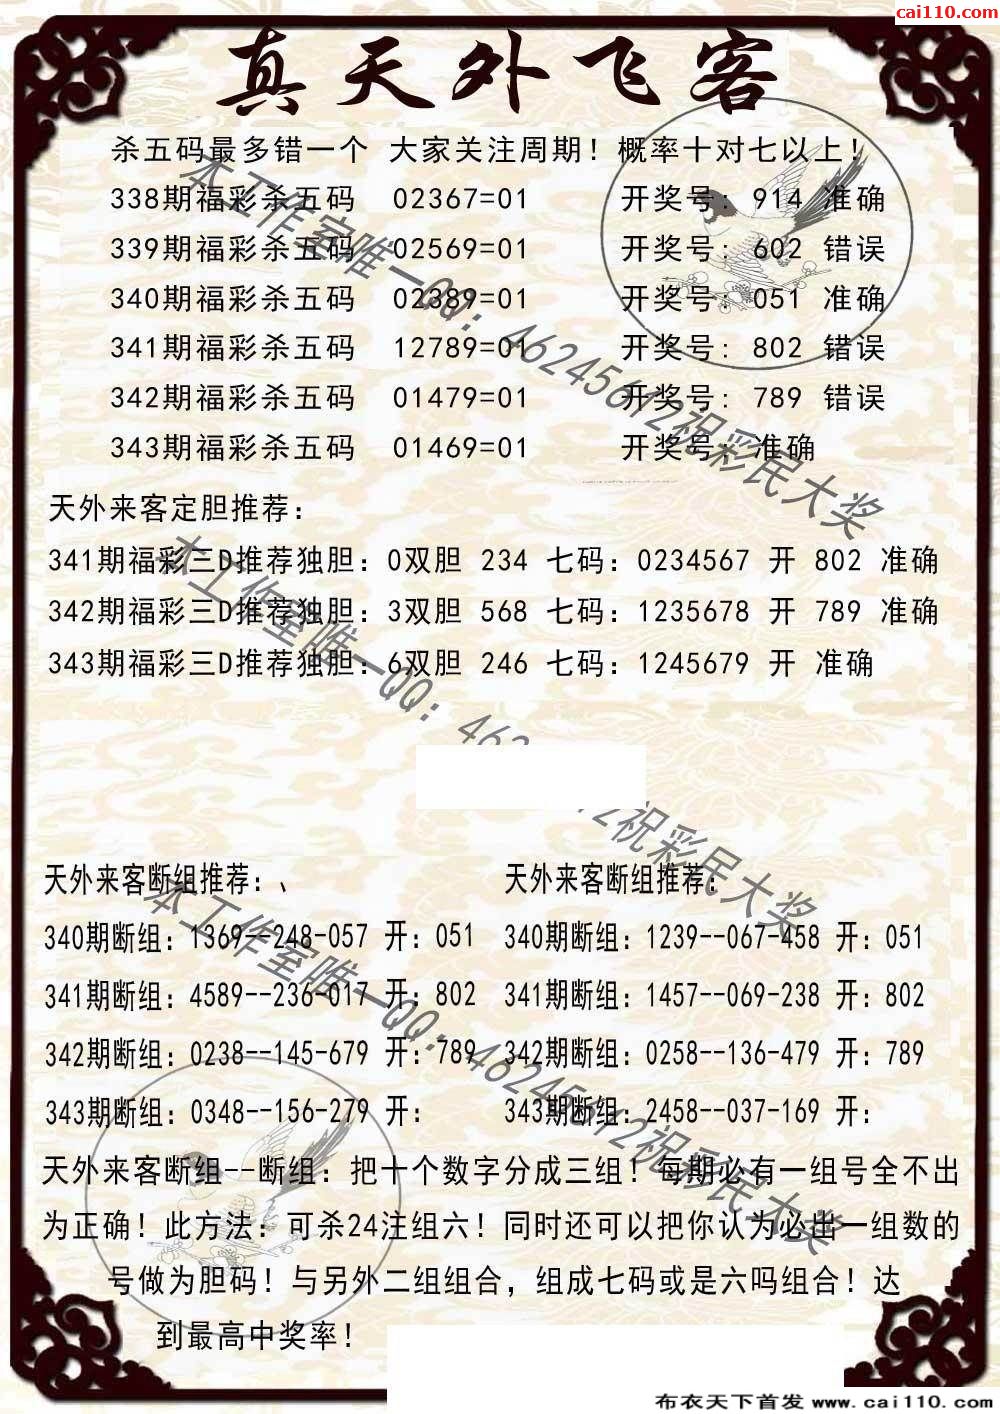 cai110.com
真天外飞客
杀五码最多错一个 大家关注周期！概率十对七以上！
338期福彩杀五码 02367=01 开奖号: 914 准确
339期福彩杀五码 02569=01 开奖号: 602 错误
340期福彩杀五码 02389=01 开奖号: 051 准确
341期福彩杀五码 12789=01 开奖号: 802 错误
342期福彩杀五码 01479=01 开奖号: 789 错误
343期福彩杀五码 01469=01 开奖号: 准确
本工作室唯一QQ：46245612祝彩民大奖
天外来客定胆推荐：
341期福彩三D推荐独胆：0双胆 234 七码：0234567 开 802 准确
342期福彩三D推荐独胆：3双胆 568 七码：1235678 开 789 准确
343期福彩三D推荐独胆：6双胆 246 七码：1245679 开 准确
本工作室唯一QQ：462 12祝彩民大奖
天外来客断组推荐：、 天外来客断组推荐：
340期断组：1369--248-057 开：051 340期断组：1239--067-458 开：051
341期断组：4589--236-017 开：802 341期断组：1457--069-238 开：802
342期断组：0238--145-679 开：789 342期断组：0258--136-479 开：789
343期断组：0348--156-279 开： 343期断组：2458--037-169 开：
本工作室唯一QQ：46245612祝彩民大奖
天外来客断组--断组：把十个数字分成三组！每期必有一组号全不出
为正确！此方法：可杀24注组六！同时还可以把你认为必出一组数的
号做为胆码！与另外二组组合，组成七码或是六吗组合！达
到最高中奖率！
布衣天下首发 www.cai110.com